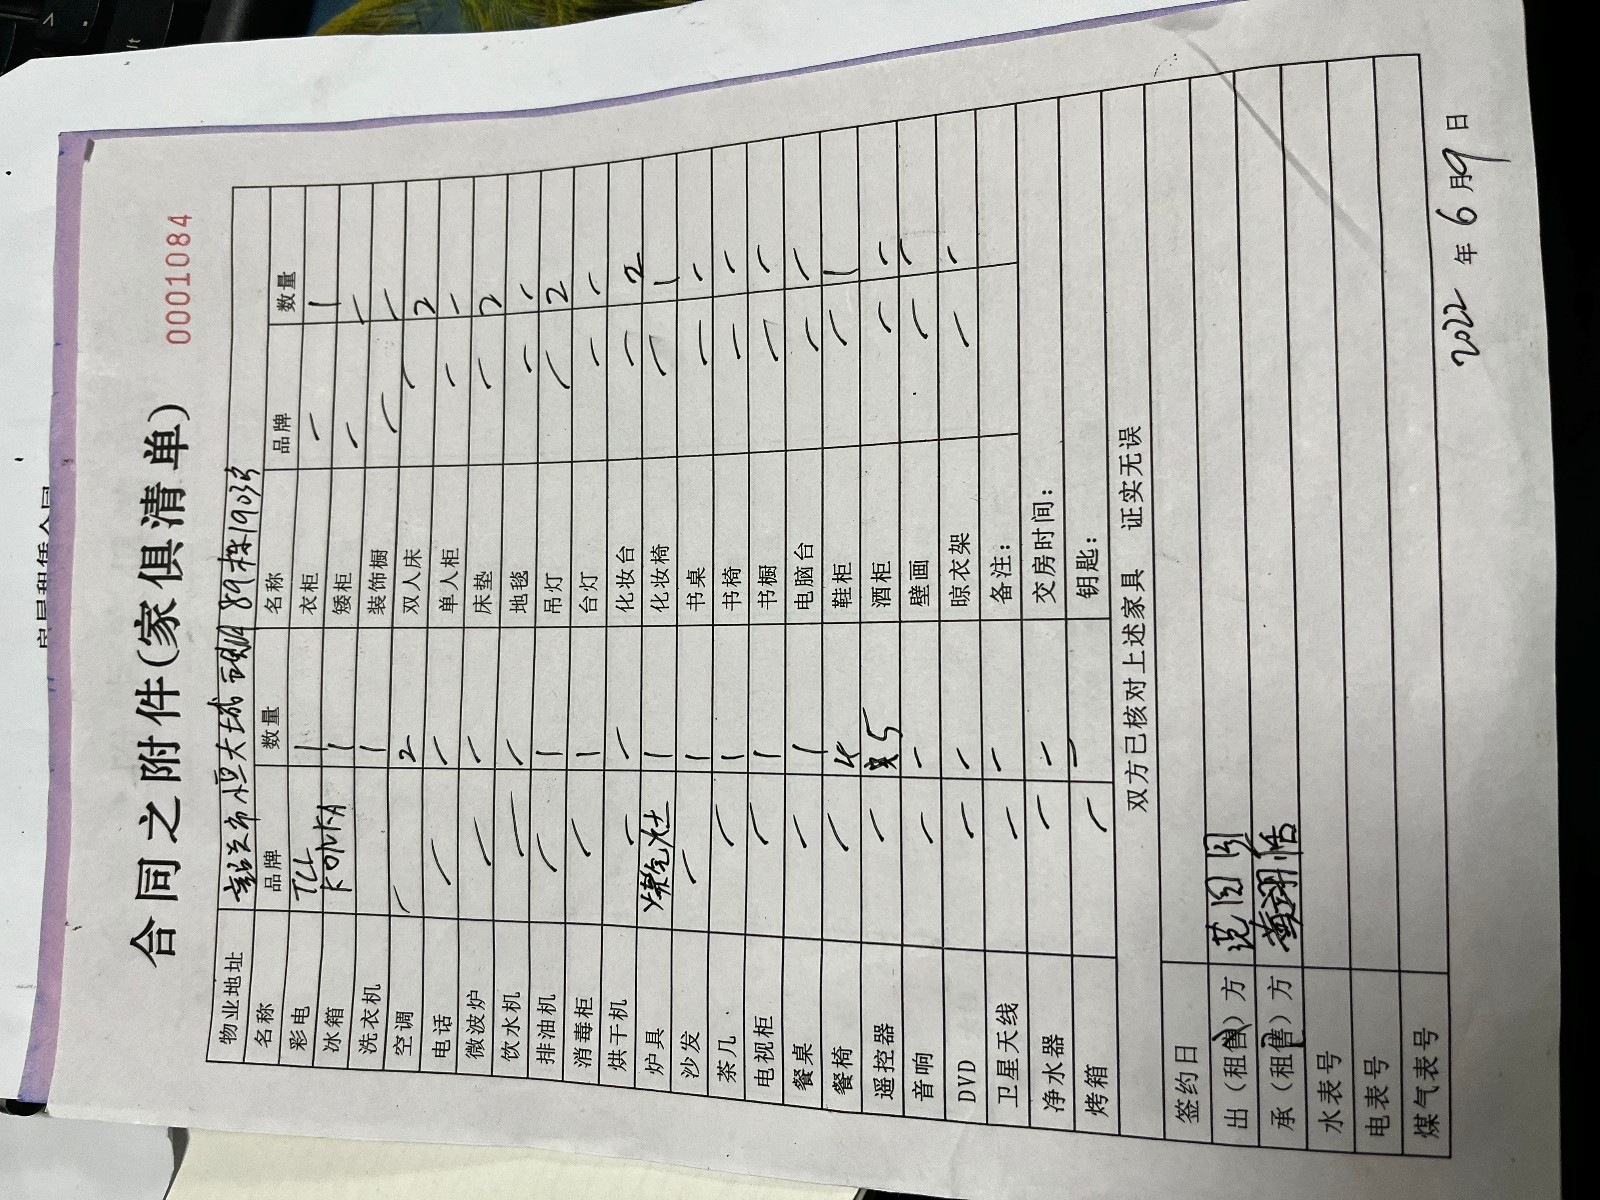 合同之附件(家俱清单)
0001084
物业地址 绍兴市恒大城 89栋1903
名称 品牌 数量 名称 品牌 数量
彩电 TCL 1 衣柜 / 1
冰箱 KONKA 1 矮柜 / /
洗衣机 1 装饰橱 / /
空调 / 2 双人床 / 2
电话 / / 单人柜 / /
微波炉 / / 床垫 / 2
饮水机 / / 地毯 / /
排油机 / 1 吊灯 / 2
消毒柜 / 1 台灯 / /
烘干机 / / 化妆台 / 2
炉具 煤气灶 1 化妆椅 / 1
沙发 / 1 书桌 / /
茶几 / 1 书椅 / /
电视柜 / 1 书橱 / /
餐桌 / 1 电脑台 / /
餐椅 / 4 鞋柜 / 1
遥控器 / 5 酒柜 / /
音响 / / 壁画 / /
DVD / / 晾衣架 / /
卫星天线 / / 备注:
净水器 / / 交房时间:
烤箱 / / 钥匙:
双方已核对上述家具 证实无误
签约日
出(租售)方 范
承(租售)方
水表号
电表号
煤气表号
2022年6月9日